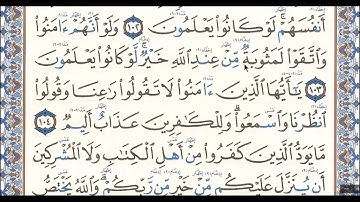 أَنفُسَهُمْ لَوْ كَانُوا۟ يَعْلَمُونَ ١٠٢ وَلَوْ أَنَّهُمْ ءَامَنُوا۟
وَٱتَّقَوْا۟ لَمَثُوبَةٌ مِّنْ عِندِ ٱللَّهِ خَيْرٌ لَّوْ كَانُوا۟ يَعْلَمُونَ
١٠٣ يَٰٓأَيُّهَا ٱلَّذِينَ ءَامَنُوا۟ لَا تَقُولُوا۟ رَٰعِنَا وَقُولُوا۟
ٱنظُرْنَا وَٱسْمَعُوا۟ وَلِلْكَٰفِرِينَ عَذَابٌ أَلِيمٌ ١٠٤
مَّا يَوَدُّ ٱلَّذِينَ كَفَرُوا۟ مِنْ أَهْلِ ٱلْكِتَٰبِ وَلَا ٱلْمُشْرِكِينَ
أَن يُنَزَّلَ عَلَيْكُم مِّنْ خَيْرٍ مِّن رَّبِّكُمْ وَٱللَّهُ يَخْتَصُّ